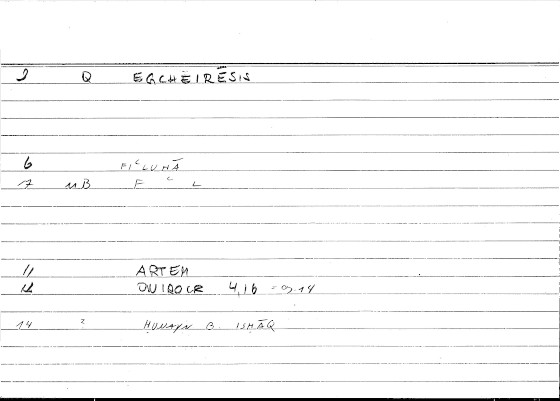 2 Q EGCHEIRĒSIS
6 FIʿLUHĀ
17 MB F ʿ L
11 ARTEM
12 4,16 = 9.14
14 2 HUNAYN B. ISHĀQ